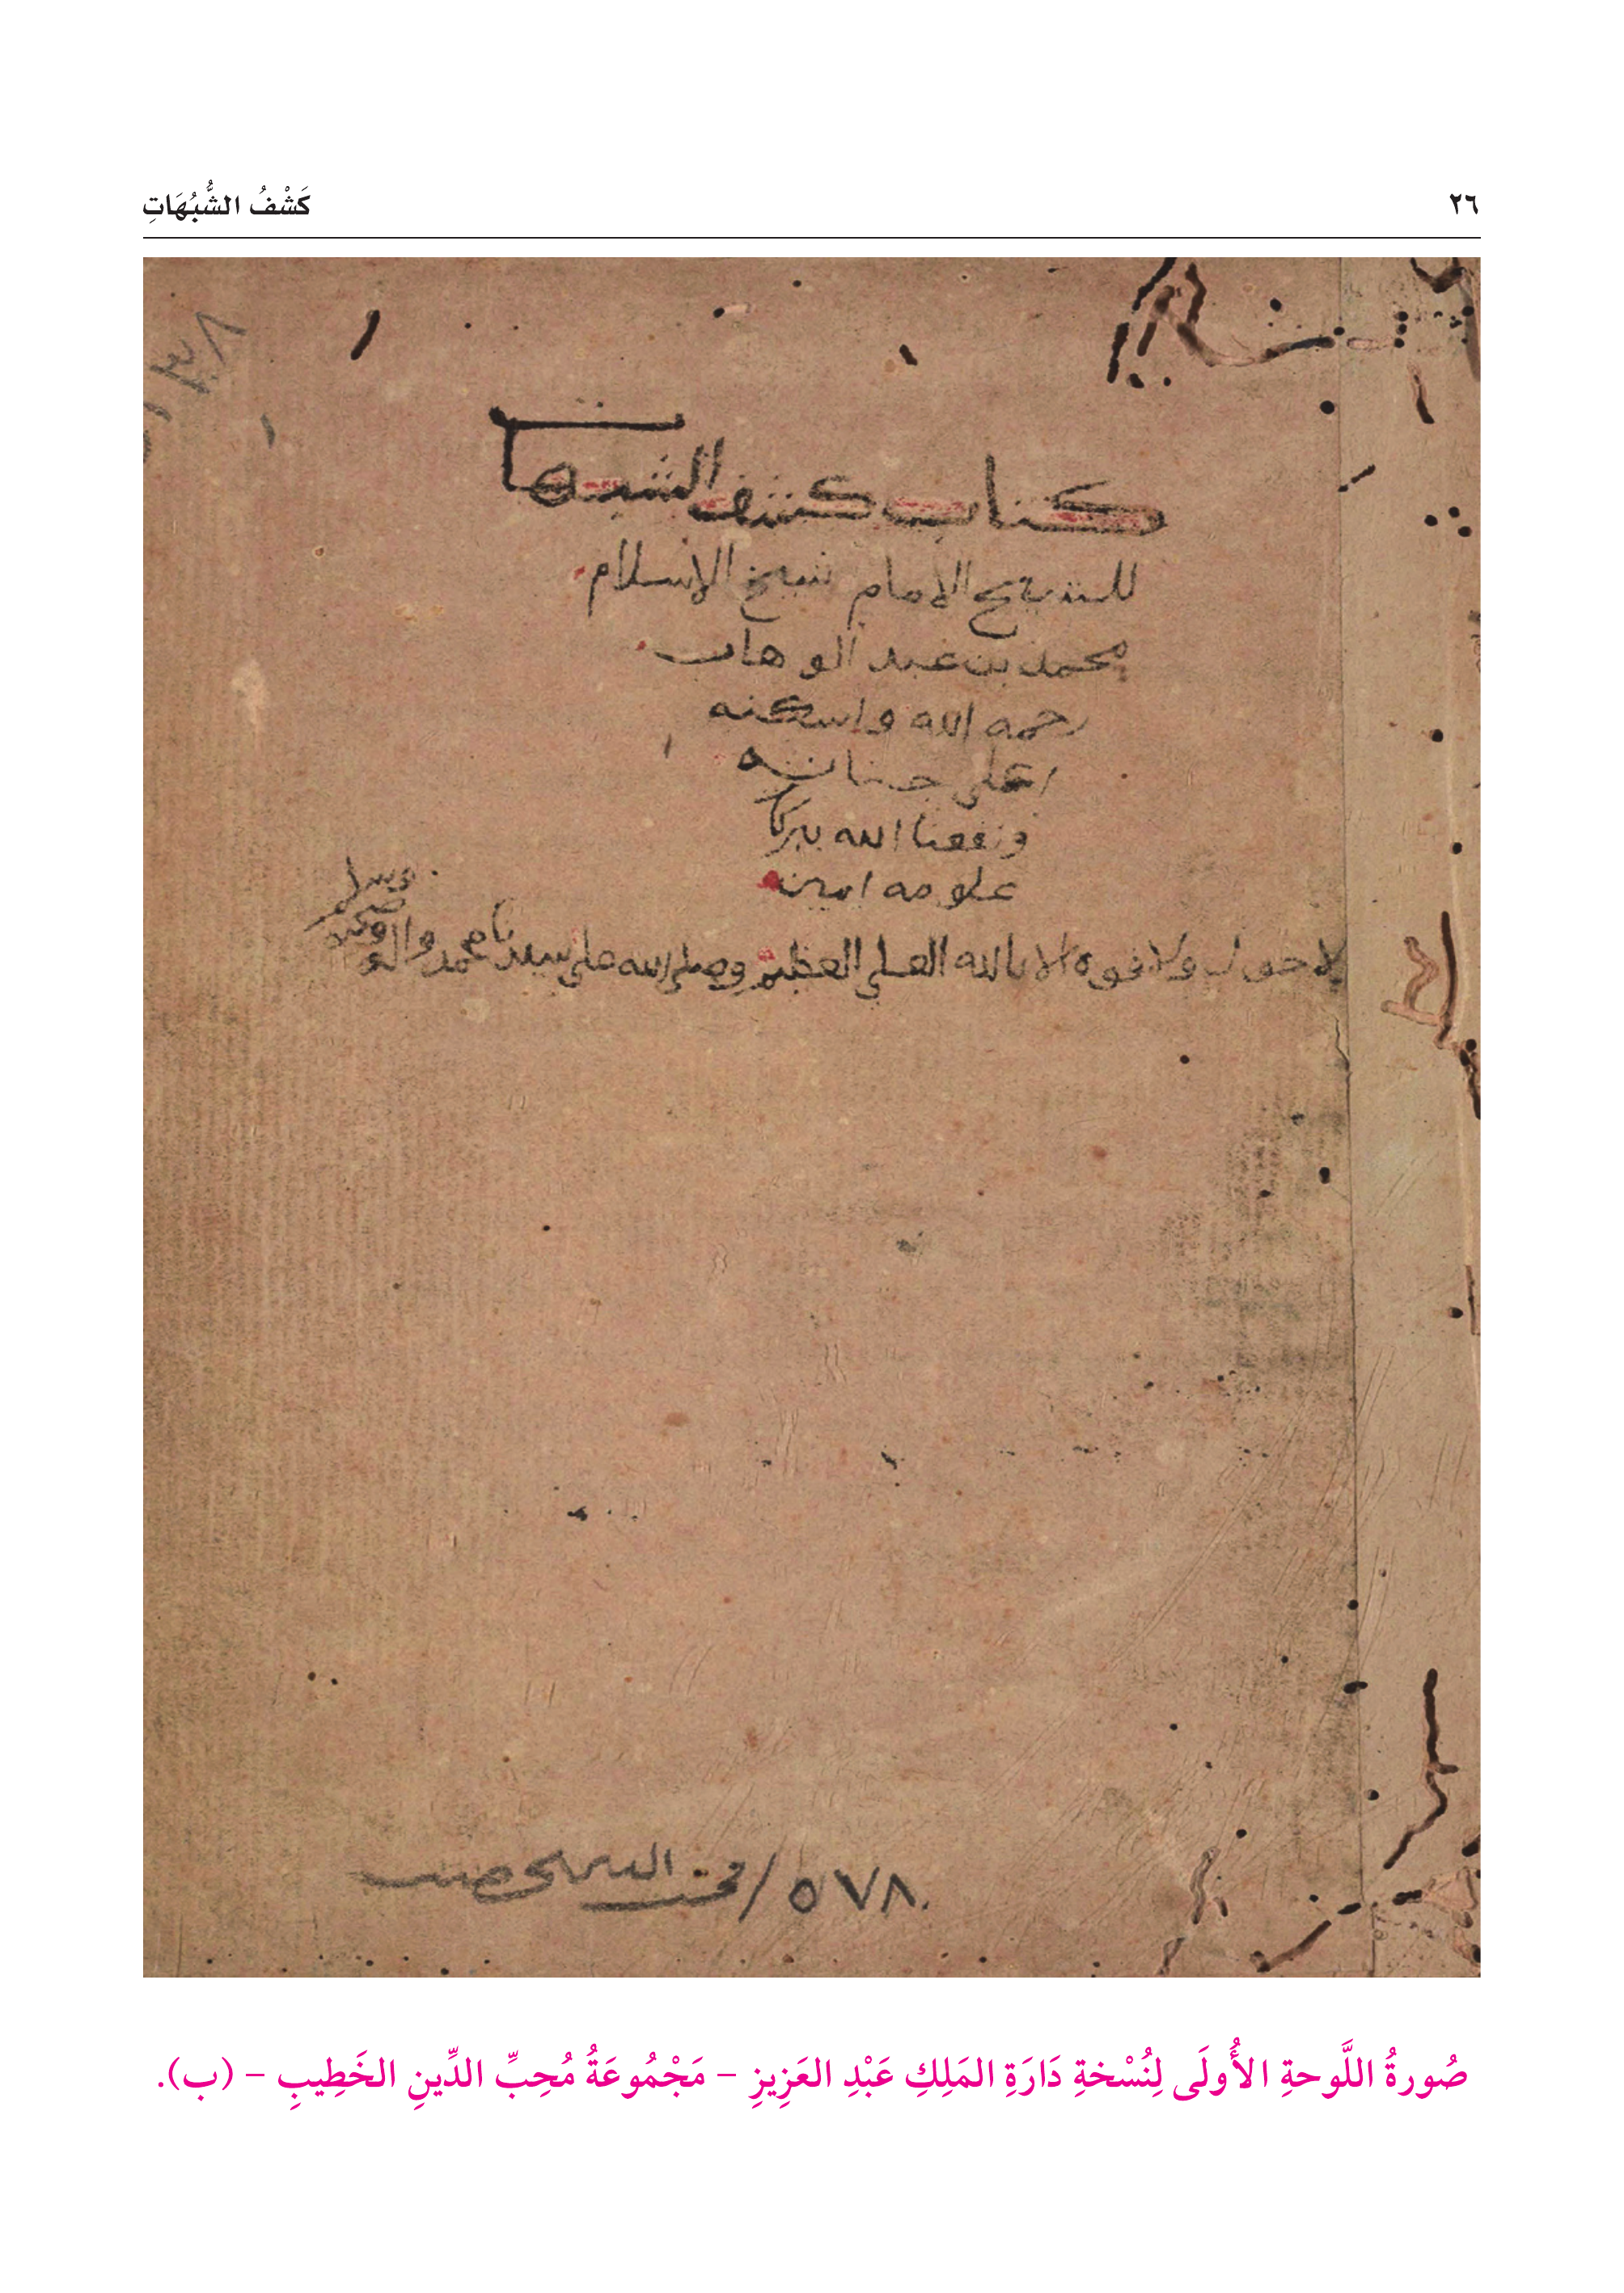 ٢٦
كَشْفُ الشُّبُهَاتِ
كتاب كشف الشبهات
للشيخ الامام شيخ الاسلام
محمد بن عبد الوهاب
رحمه الله واسكنه
اعلى جناته
ونفعنا الله ببركا
علومه امين
لا حول ولا قوة الا بالله العلي العظيم وصلى الله على سيدنا محمد واله وصحبه وسلم
٥٧٨ /
صُورةُ اللَّوحةِ الأُولَى لِنُسْخةِ دَارَةِ المَلِكِ عَبْدِ العَزِيزِ – مَجْمُوعَةُ مُحِبِّ الدِّينِ الخَطِيبِ – (ب).